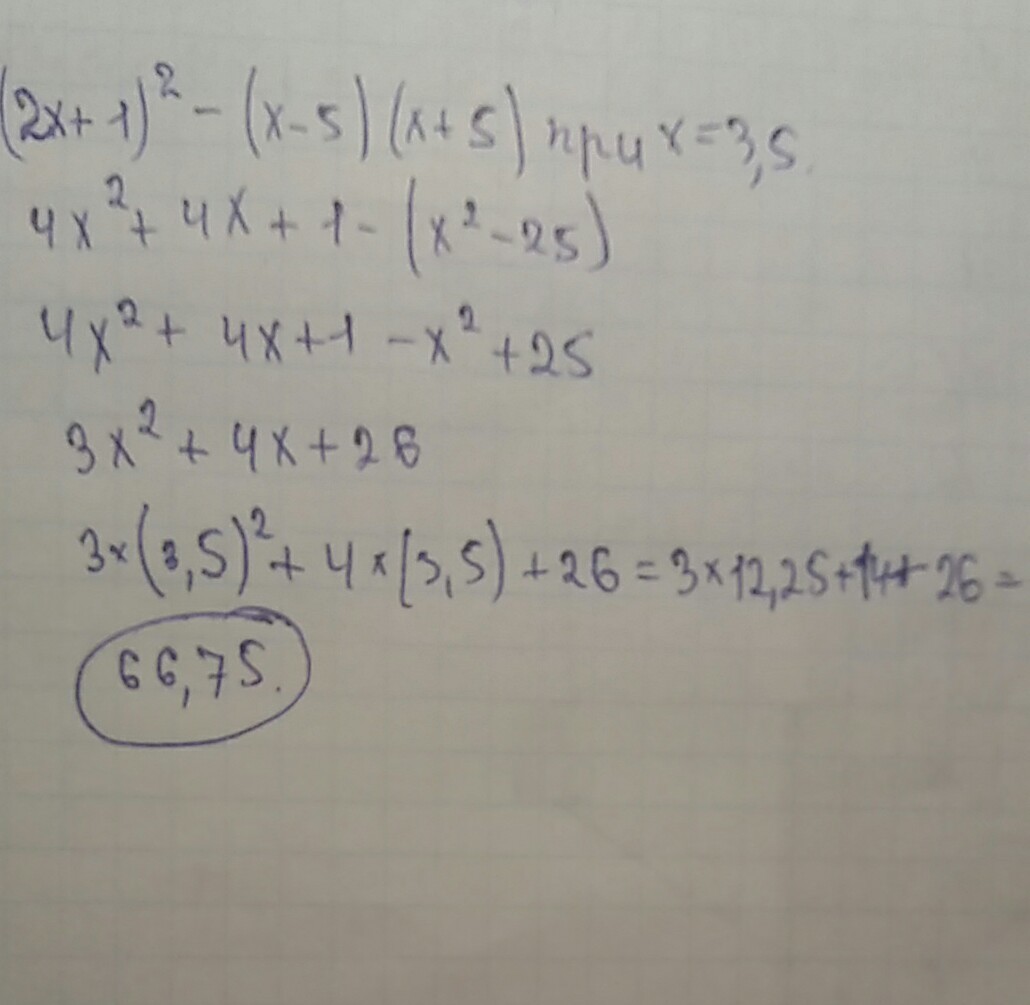 (2x+1)² - (x-5)(x+5) при x=3,5.
4x² + 4x + 1 - (x² - 25)
4x² + 4x + 1 - x² + 25
3x² + 4x + 26
3×(3,5)² + 4×(3,5) + 26 = 3×12,25+14+26 =
66,75.